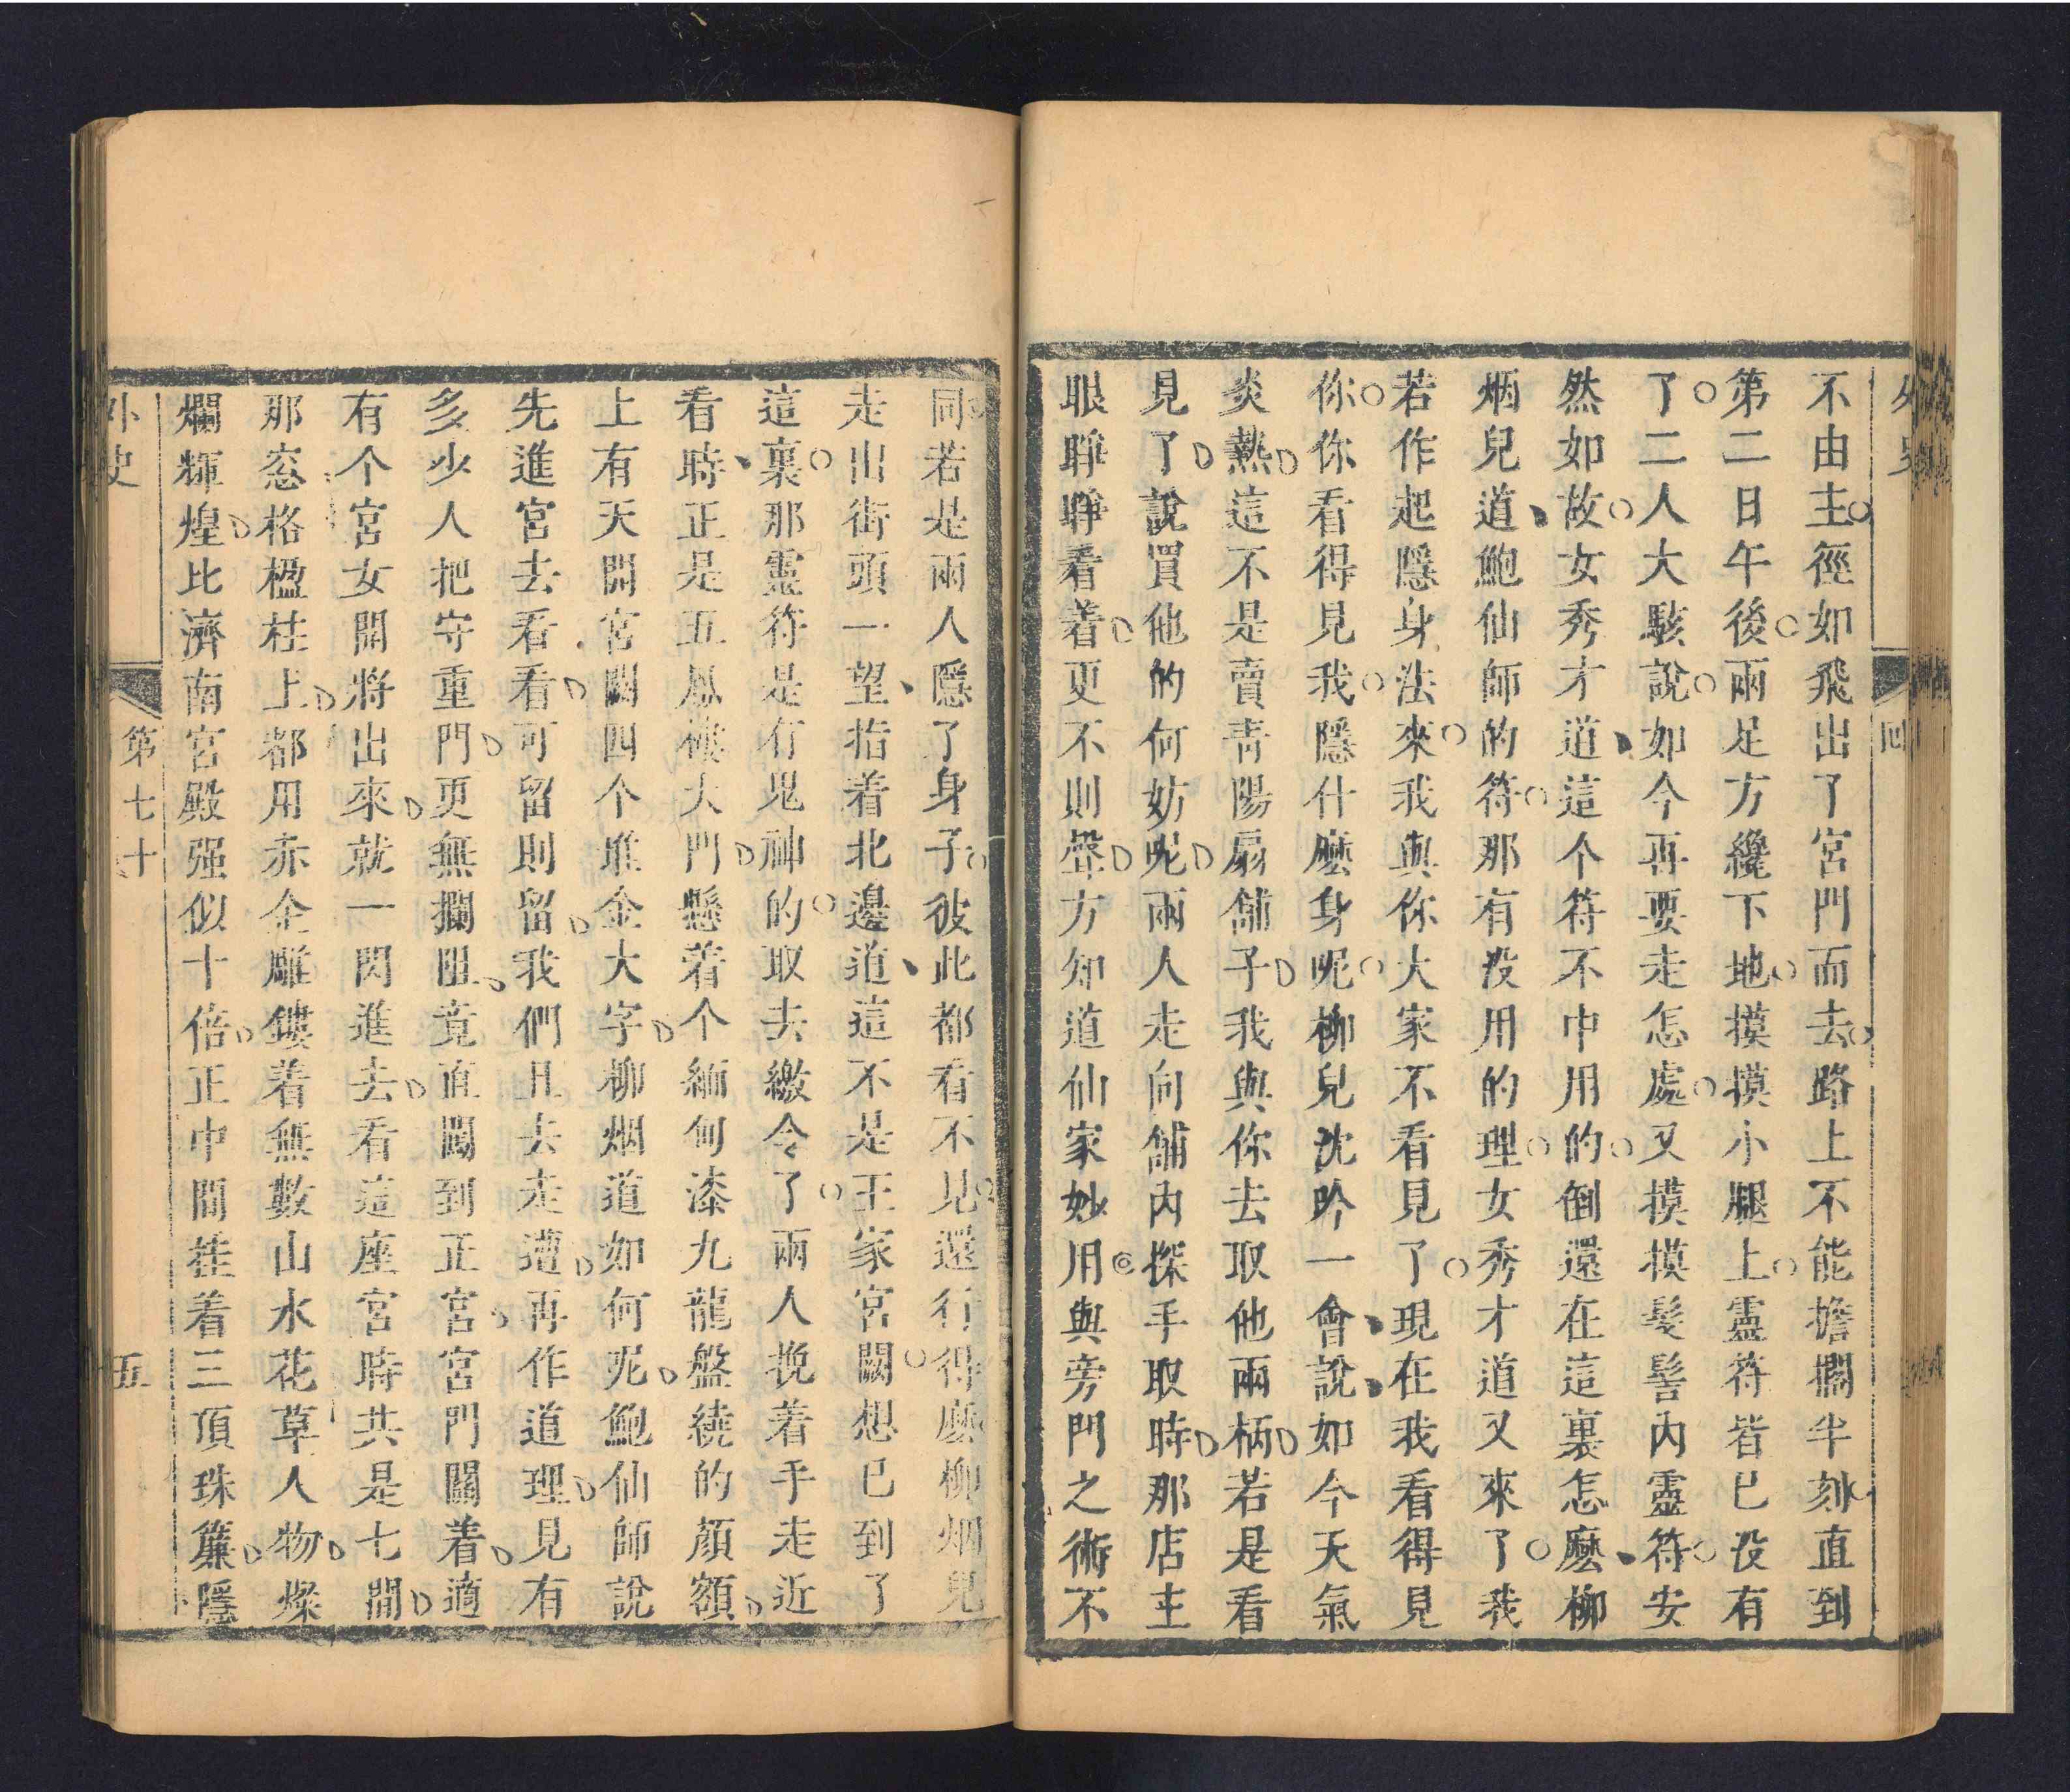 外史
回
不由主徑如飛出了宮門而去路上不能擔擱半刻直到
第二日午後兩足方纔下地摸摸小腿上靈符皆已没有
了二人大駭說如今再要走怎處又摸摸髮髻內靈符安
然如故女秀才道這个符不中用的倒還在這裏怎麽柳
烟兒道鮑仙師的符那有没用的理女秀才道又來了我
若作起隱身法來我與你大家不看見了現在我看得見
你你看得見我隱什麽身呢柳兒沈吟一會說如今天氣
炎熱這不是賣青陽扇舖子我與你去取他兩柄若是看
見了說買他的何妨呢兩人走向舖內探手取時那店主
眼睜睜看着更不則聲方知道仙家妙用與旁門之術不
同若是兩人隱了身子彼此都看不見還行得麽柳烟兒
走出街頭一望指着北邊道這不是王家宮闕想已到了
這裏那靈符是有鬼神的取去繳令了兩人挽着手走近
看時正是五鳳樓大門懸着个緬甸漆九龍盤繞的顏額
上有天開宮闕四个堆金大字柳烟道如何呢鮑仙師說
先進宮去看看可留則留我們且去走遭再作道理見有
多少人把守重門更無攔阻竟直闖到正宮宮門關着適
有个宮女開將出來就一閃進去看這座宮時共是七間
那窓格楹柱上都用赤金雕鏤着無數山水花草人物燦
爛輝煌比濟南宮殿强似十倍正中間挂着三頂珠簾隱
外史
第七十
五